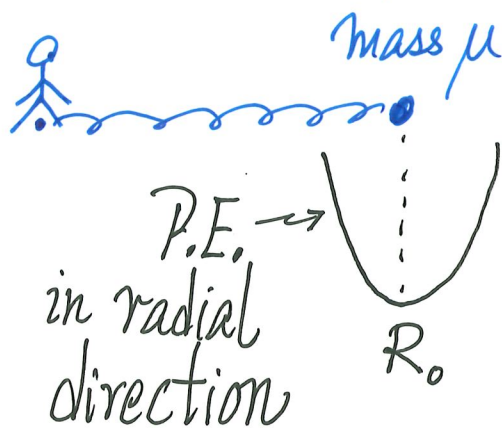 mass μ
P.E. →
in radial
direction
R₀